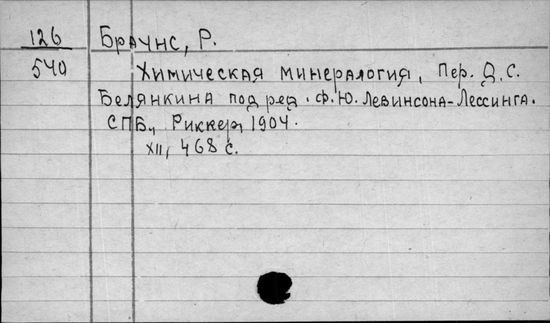 126 Браунс, Р.
540 Химическая минералогия, Пер. Д. С.
Белянкина под ред. Ф. Ю. Левинсона-Лессинга.
СПБ, Риккер, 1904.
XII, 468 с.